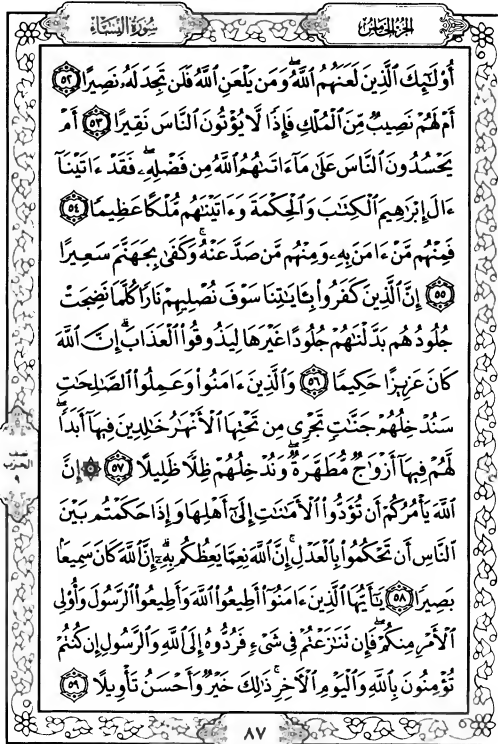 سُورَةُ النِّسَاءِ
الجُزْءُ الخَامِسُ
أُو۟لَـٰٓئِكَ ٱلَّذِينَ لَعَنَهُمُ ٱللَّهُ ۖ وَمَن يَلْعَنِ ٱللَّهُ فَلَن تَجِدَ لَهُۥ نَصِيرًا ٥٢
أَمْ لَهُمْ نَصِيبٌ مِّنَ ٱلْمُلْكِ فَإِذًا لَّا يُؤْتُونَ ٱلنَّاسَ نَقِيرًا ٥٣ أَمْ
يَحْسُدُونَ ٱلنَّاسَ عَلَىٰ مَآ ءَاتَىٰهُمُ ٱللَّهُ مِن فَضْلِهِۦ ۖ فَقَدْ ءَاتَيْنَآ
ءَالَ إِبْرَٰهِيمَ ٱلْكِتَـٰبَ وَٱلْحِكْمَةَ وَءَاتَيْنَـٰهُم مُّلْكًا عَظِيمًا ٥٤
فَمِنْهُم مَّنْ ءَامَنَ بِهِۦ وَمِنْهُم مَّن صَدَّ عَنْهُ ۚ وَكَفَىٰ بِجَهَنَّمَ سَعِيرًا
٥٥ إِنَّ ٱلَّذِينَ كَفَرُوا۟ بِـَٔايَـٰتِنَا سَوْفَ نُصْلِيهِمْ نَارًا كُلَّمَا نَضِجَتْ
جُلُودُهُم بَدَّلْنَـٰهُمْ جُلُودًا غَيْرَهَا لِيَذُوقُوا۟ ٱلْعَذَابَ ۗ إِنَّ ٱللَّهَ
كَانَ عَزِيزًا حَكِيمًا ٥٦ وَٱلَّذِينَ ءَامَنُوا۟ وَعَمِلُوا۟ ٱلصَّـٰلِحَـٰتِ
سَنُدْخِلُهُمْ جَنَّـٰتٍ تَجْرِى مِن تَحْتِهَا ٱلْأَنْهَـٰرُ خَـٰلِدِينَ فِيهَآ أَبَدًا ۖ
لَّهُمْ فِيهَآ أَزْوَٰجٌ مُّطَهَّرَةٌ ۖ وَنُدْخِلُهُمْ ظِلًّا ظَلِيلًا ٥٧ ۞ إِنَّ
ٱللَّهَ يَأْمُرُكُمْ أَن تُؤَدُّوا۟ ٱلْأَمَـٰنَـٰتِ إِلَىٰٓ أَهْلِهَا وَإِذَا حَكَمْتُم بَيْنَ
ٱلنَّاسِ أَن تَحْكُمُوا۟ بِٱلْعَدْلِ ۚ إِنَّ ٱللَّهَ نِعِمَّا يَعِظُكُم بِهِۦٓ ۗ إِنَّ ٱللَّهَ كَانَ سَمِيعًۢا
بَصِيرًا ٥٨ يَـٰٓأَيُّهَا ٱلَّذِينَ ءَامَنُوٓا۟ أَطِيعُوا۟ ٱللَّهَ وَأَطِيعُوا۟ ٱلرَّسُولَ وَأُو۟لِى
ٱلْأَمْرِ مِنكُمْ ۖ فَإِن تَنَـٰزَعْتُمْ فِى شَىْءٍ فَرُدُّوهُ إِلَى ٱللَّهِ وَٱلرَّسُولِ إِن كُنتُمْ
تُؤْمِنُونَ بِٱللَّهِ وَٱلْيَوْمِ ٱلْـَٔاخِرِ ۚ ذَٰلِكَ خَيْرٌ وَأَحْسَنُ تَأْوِيلًا ٥٩
الحزب
٩
٨٧